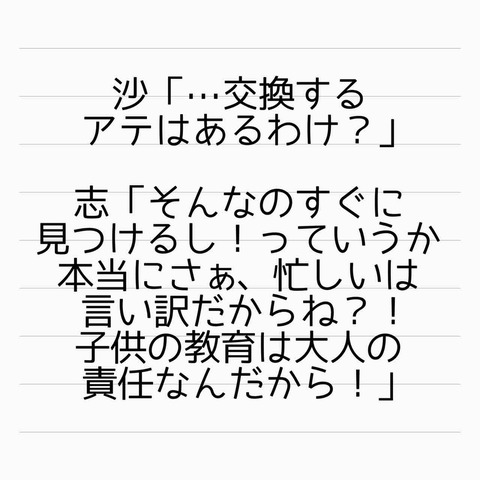 沙「…交換する
アテはあるわけ？」
志「そんなのすぐに
見つけるし！っていうか
本当にさぁ、忙しいは
言い訳だからね？！
子供の教育は大人の
責任なんだから！」